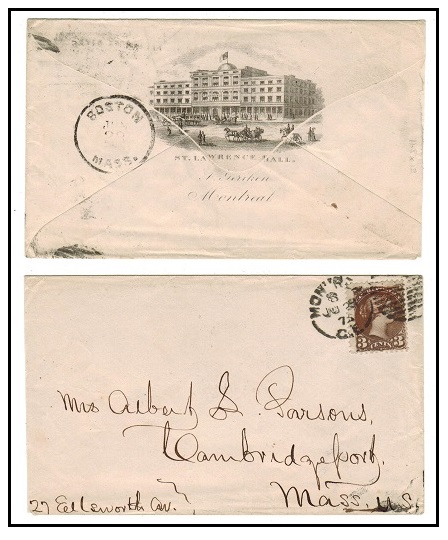 BOSTON
MASS.
ST. LAWRENCE HALL.
Montreal
3 CENTS 3
Mrs Albert L. Parsons,
Cambridgeport,
Mass, U.S.
27 Ellsworth Av.